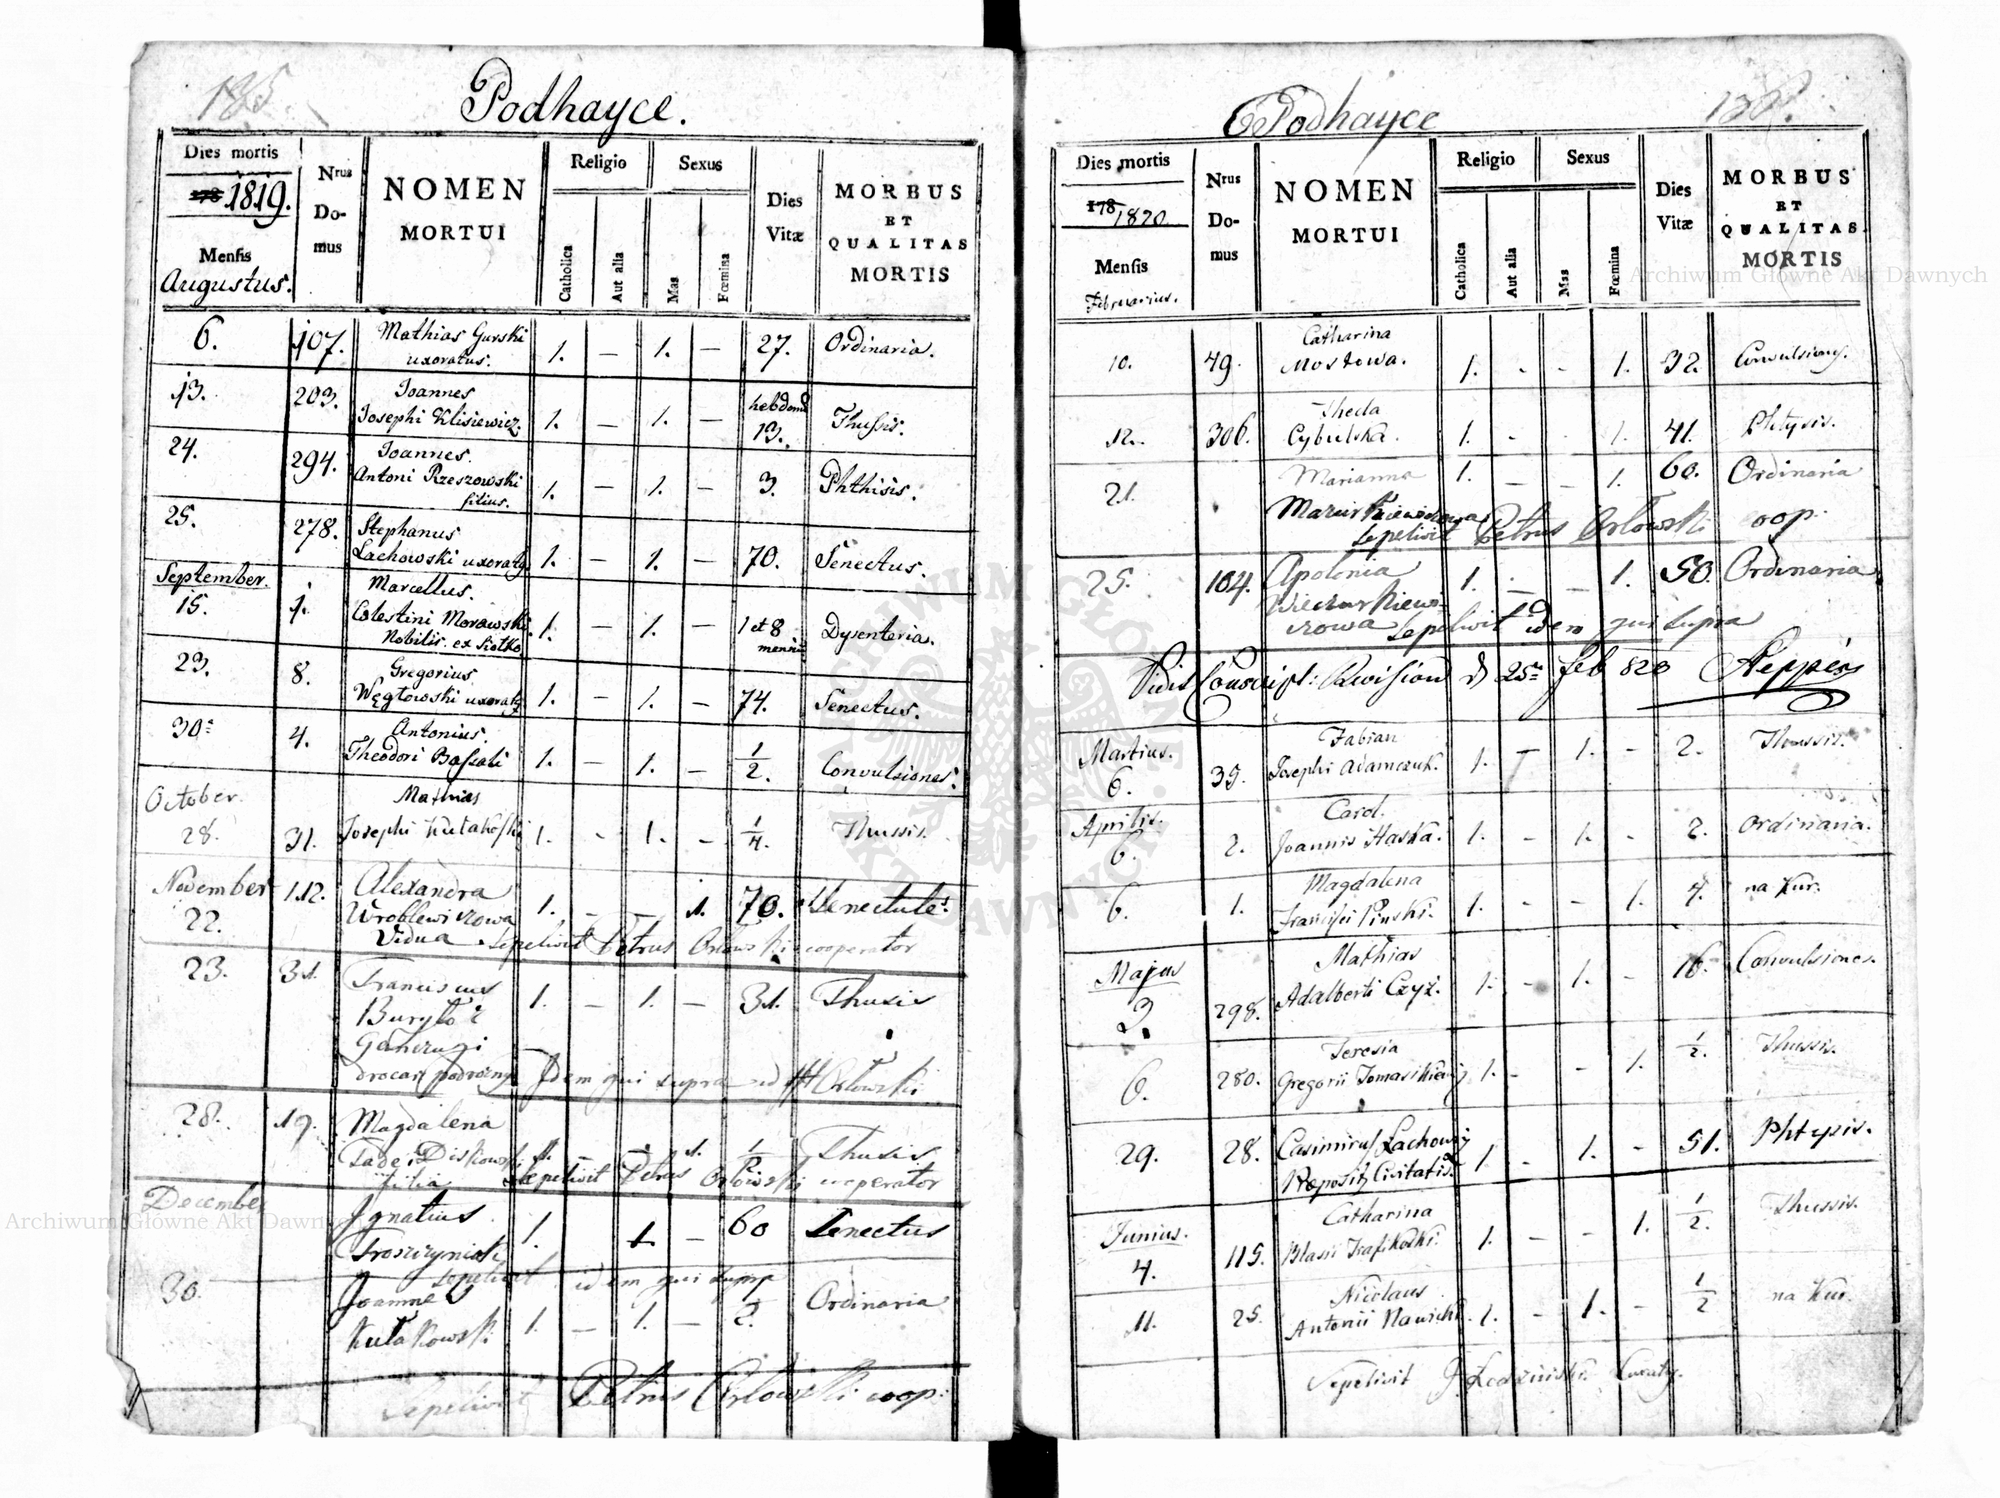 Podhayce.
Dies mortis
1819.
Mensis
Augustus.
Nrus Do-mus
NOMEN MORTUI
Religio
Catholica
Aut alia
Sexus
Mas
Fœmina
Dies Vitæ
MORBUS ET QUALITAS MORTIS
6. 107. Mathias Gurski 1. — 1. — 27. Ordinaria.
uxoratus.
13. 203. Joannes hebdom
Josephi Klisiewicz. 1. — 1. — 13. Thussis.
24. 294. Joannes.
Antoni Rzeszowski 1. — 1. — 3. Phthisis.
filius.
25. 278. Stephanus
Lachowski uxoratg 1. — 1. — 70. Senectus.
September. Marcellus.
15. 1. Celestini Morawski. 1. — 1. — 1 et 8 Dysenteria.
Nobilis. ex Siolko
23. 8. Gregorius
Węgłowski uxoratg 1. — 1. — 74. Senectus.
30 4. Antonius.
Theodori Bassali 1. — 1. — 1/2. Convulsiones.
October. Mathias
28. 31. Josephi Kułakoski 1. - 1. - 1/4. Thussis.
November 112. Alexandra
22. Wroblewiczowa 1. - - 1. 70. Senectute
Vidua. Sepelivit Petrus Orłowski cooperator
23. 31. Franciscus 1. — 1. — 31. Thusis
Buryło
Idem qui supra Orłowski
28. 19. Magdalena
Tadei Diskowski 1. - 1. 1/2 Thusis
filia Sepelivit Petrus Orłowski cooperator
December Ignatius 1. 1. — 60 Senectus
Sepelivit idem qui supr
30. Joanne Ordinaria
Kułakowski 1. — 1. — 2.
Sepelivit Petrus Orłowski coop.
Podhayce
Dies mortis
178 1820
Mensis
Februarius.
Nrus Do-mus
NOMEN MORTUI
Religio
Catholica
Aut alia
Sexus
Mas
Fœmina
Dies Vitæ
MORBUS ET QUALITAS MORTIS
Catharina
10. 49. Mostowa. 1. - - 1. 32. Convulsions.
Theda
12. 306. Cybulska. 1. - 1. 41. Phtysis.
21. Marianna 1. — — 1. 60. Ordinaria
Mazurkiewiczowa
Sepelivit Petrus Orłowski coop.
25. 104. Apolonia 1. — — 1. 50. Ordinaria
Wieczorkiewi-
czowa Sepelivit idem qui supra
Vidit Conscript: Revision d 25 Feb 820
Martius. Fabian
6. 35. Josephi Adamczuk. 1. - 1. - 2. Thussis.
Aprilis. Carol.
6. 2. Joannis Haska. 1. - 1. - 2. Ordinaria.
6. 1. Magdalena 1. - - 1. 4. na Kur.
Francisci Pinski.
Majus Mathias
3. 298. Adalberti Czyż. 1. - 1. - 16. Convulsiones.
Teresia
6. 280. Gregorii Tomasikiewicz 1. - - 1. 1/2. Thussis.
29. 28. Casimirus Lachowicz 1. - 1. - 51. Phtysis.
Catharina
Junius. 115. Blasii 1. - - 1. 1/2. Thussis.
4.
Nicolaus
11. 25. Antonii 1. - 1. - 1/2 na Kur.
Sepelivit
Archiwum Główne Akt Dawnych
Archiwum Główne Akt Dawnych
ARCHIWUM GŁÓWNE AKT DAWNYCH